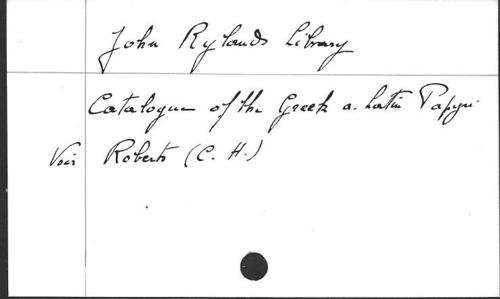 John Rylands Library
Catalogue of the Greek a. Latin Papyri
Voir Roberts (C. H.)